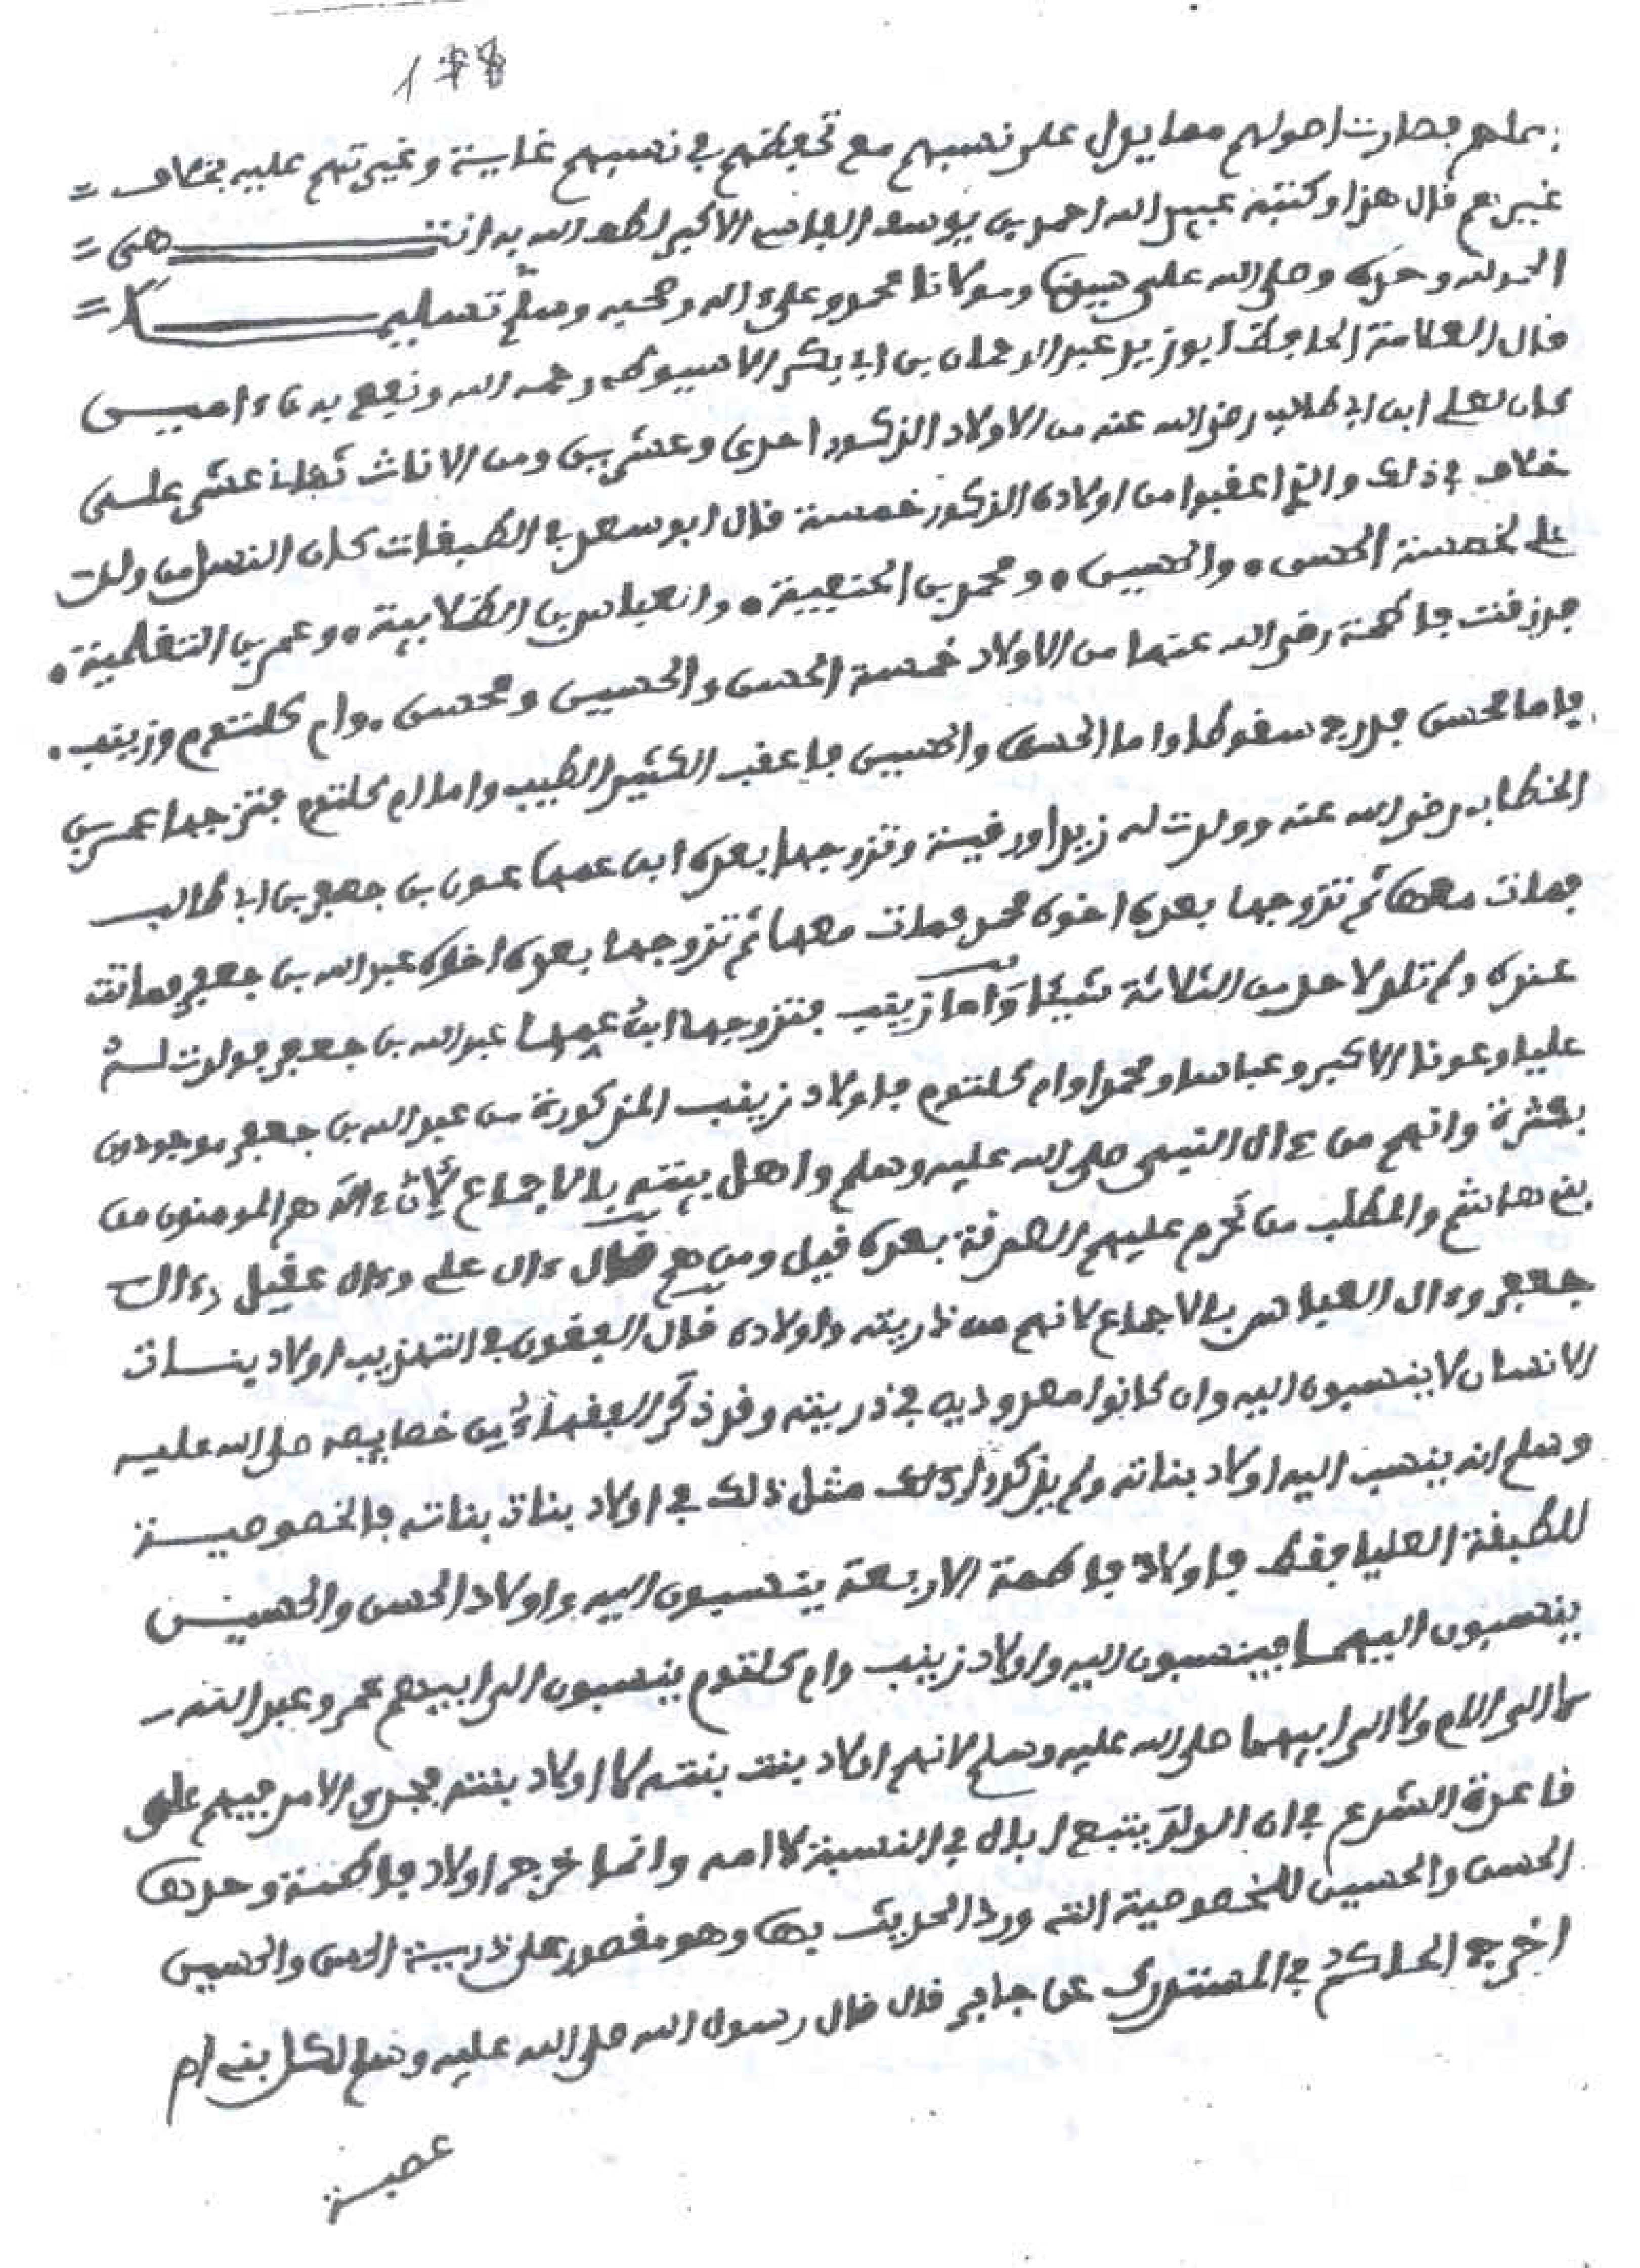 178
بماهم بصارت اصولهم مما يدل على نسبهم مع تحفظهم في نسبهم غاية وغيرتهم عليه بخلاف =
غيرهم قال هذا وكتبه عبيد الله احمد بن يوسف الفاسي الاكبر لطف الله به انتـــــهى =
الحمد لله وحده وصلى الله على سيدنا ومولانا محمد وعلى ءاله وصحبه وسلم تسليمـــــا =
قال العلامة الحافظ ابو زيد عبد الرحمان بن ابي بكر الاسيوطي رحمه الله ونفع به ءاميـــن
كان لعلي ابن ابي طالب رضي الله عنه من الاولاد الذكور احدى وعشرين ومن الاناث ثمان عشر علـــى
خلاف في ذلك والذين اعقبوا من اولاده الذكور خمسة قال ابو سعد في الطبقات كان النسل من ولد
علي لخمسة الحسن • والحسين • ومحمد بن الحنفية • والعباس بن الكلابية • وعمر بن التغلبية •
فرزقت فاطمة رضي الله عنها من الاولاد خمسة الحسن والحسين ومحسن • وام كلثوم وزينب •
فاما محسن فدرج سقوطا واما الحسن والحسين فاعقب الكثير الطيب واما ام كلثوم فتزوجها عمر بن
الخطاب رضي الله عنه وولدت له زيدا ورقية وتزوجها بعده ابن عمها عون بن جعفر بن ابي طالب
فمات معها ثم تزوجها بعده اخوه محمد فمات معها ثم تزوجها بعده اخوه عبد الله بن جعفر فماتت
عنده ولم تلد لاحد من الثلاثة شيئا واما زينب فتزوجها ابن عمها عبد الله بن جعفر فولدت لـــه
عليا وعونا الاكبر وعباسا ومحمدا وام كلثوم فاولاد زينب المذكورة من عبد الله بن جعفر موجودون
بكثرة وانهم من ءال النبي صلى الله عليه وسلم واهل بيته بالاجماع لان ءاله هم المومنون من
بني هاشم والمطلب من تحرم عليهم الصدقة بعده قيل ومن هم قال ءال علي وءال عقيل وءال
جعفر وءال العباس بالاجماع لانهم من ذريته واولاده قال البغوي في التهذيب اولاد بنـــات
الانسان لا ينسبون اليه وان كانوا معدودين في ذريته وقد ذكر الفقهاء من خصايصه صلى الله عليـــه
وسلم انه ينسب اليه اولاد بناته ولم يذكروا مثل ذلك في اولاد بنات بناته فالخصوصيـــة
للطبقة العليا فقط فاولاد فاطمة الاربعة ينسبون اليه واولاد الحسن والحسيـــن
ينسبون اليهما فينسبون اليه واولاد زينب وام كلثوم ينسبون الى ابيهم عمر وعبد اللـــه
لا الى الام ولا الى ابيهما صلى الله عليه وسلم لانهم اولاد بنت بنته لا اولاد بنته فجرى الامر فيهم على
قاعدة الشرع في ان الولد يتبع اباه في النسبة لا امه وانما خرج اولاد فاطمة وحدها
الحسن والحسين للخصوصية التي ورد الحديث بها وهو مقصور على ذرية الحسن والحسين
اخرج الحاكم في المستدرك عن جابر قال قال رسول الله صلى الله عليه وسلم لكل بني ام
عصبـــة